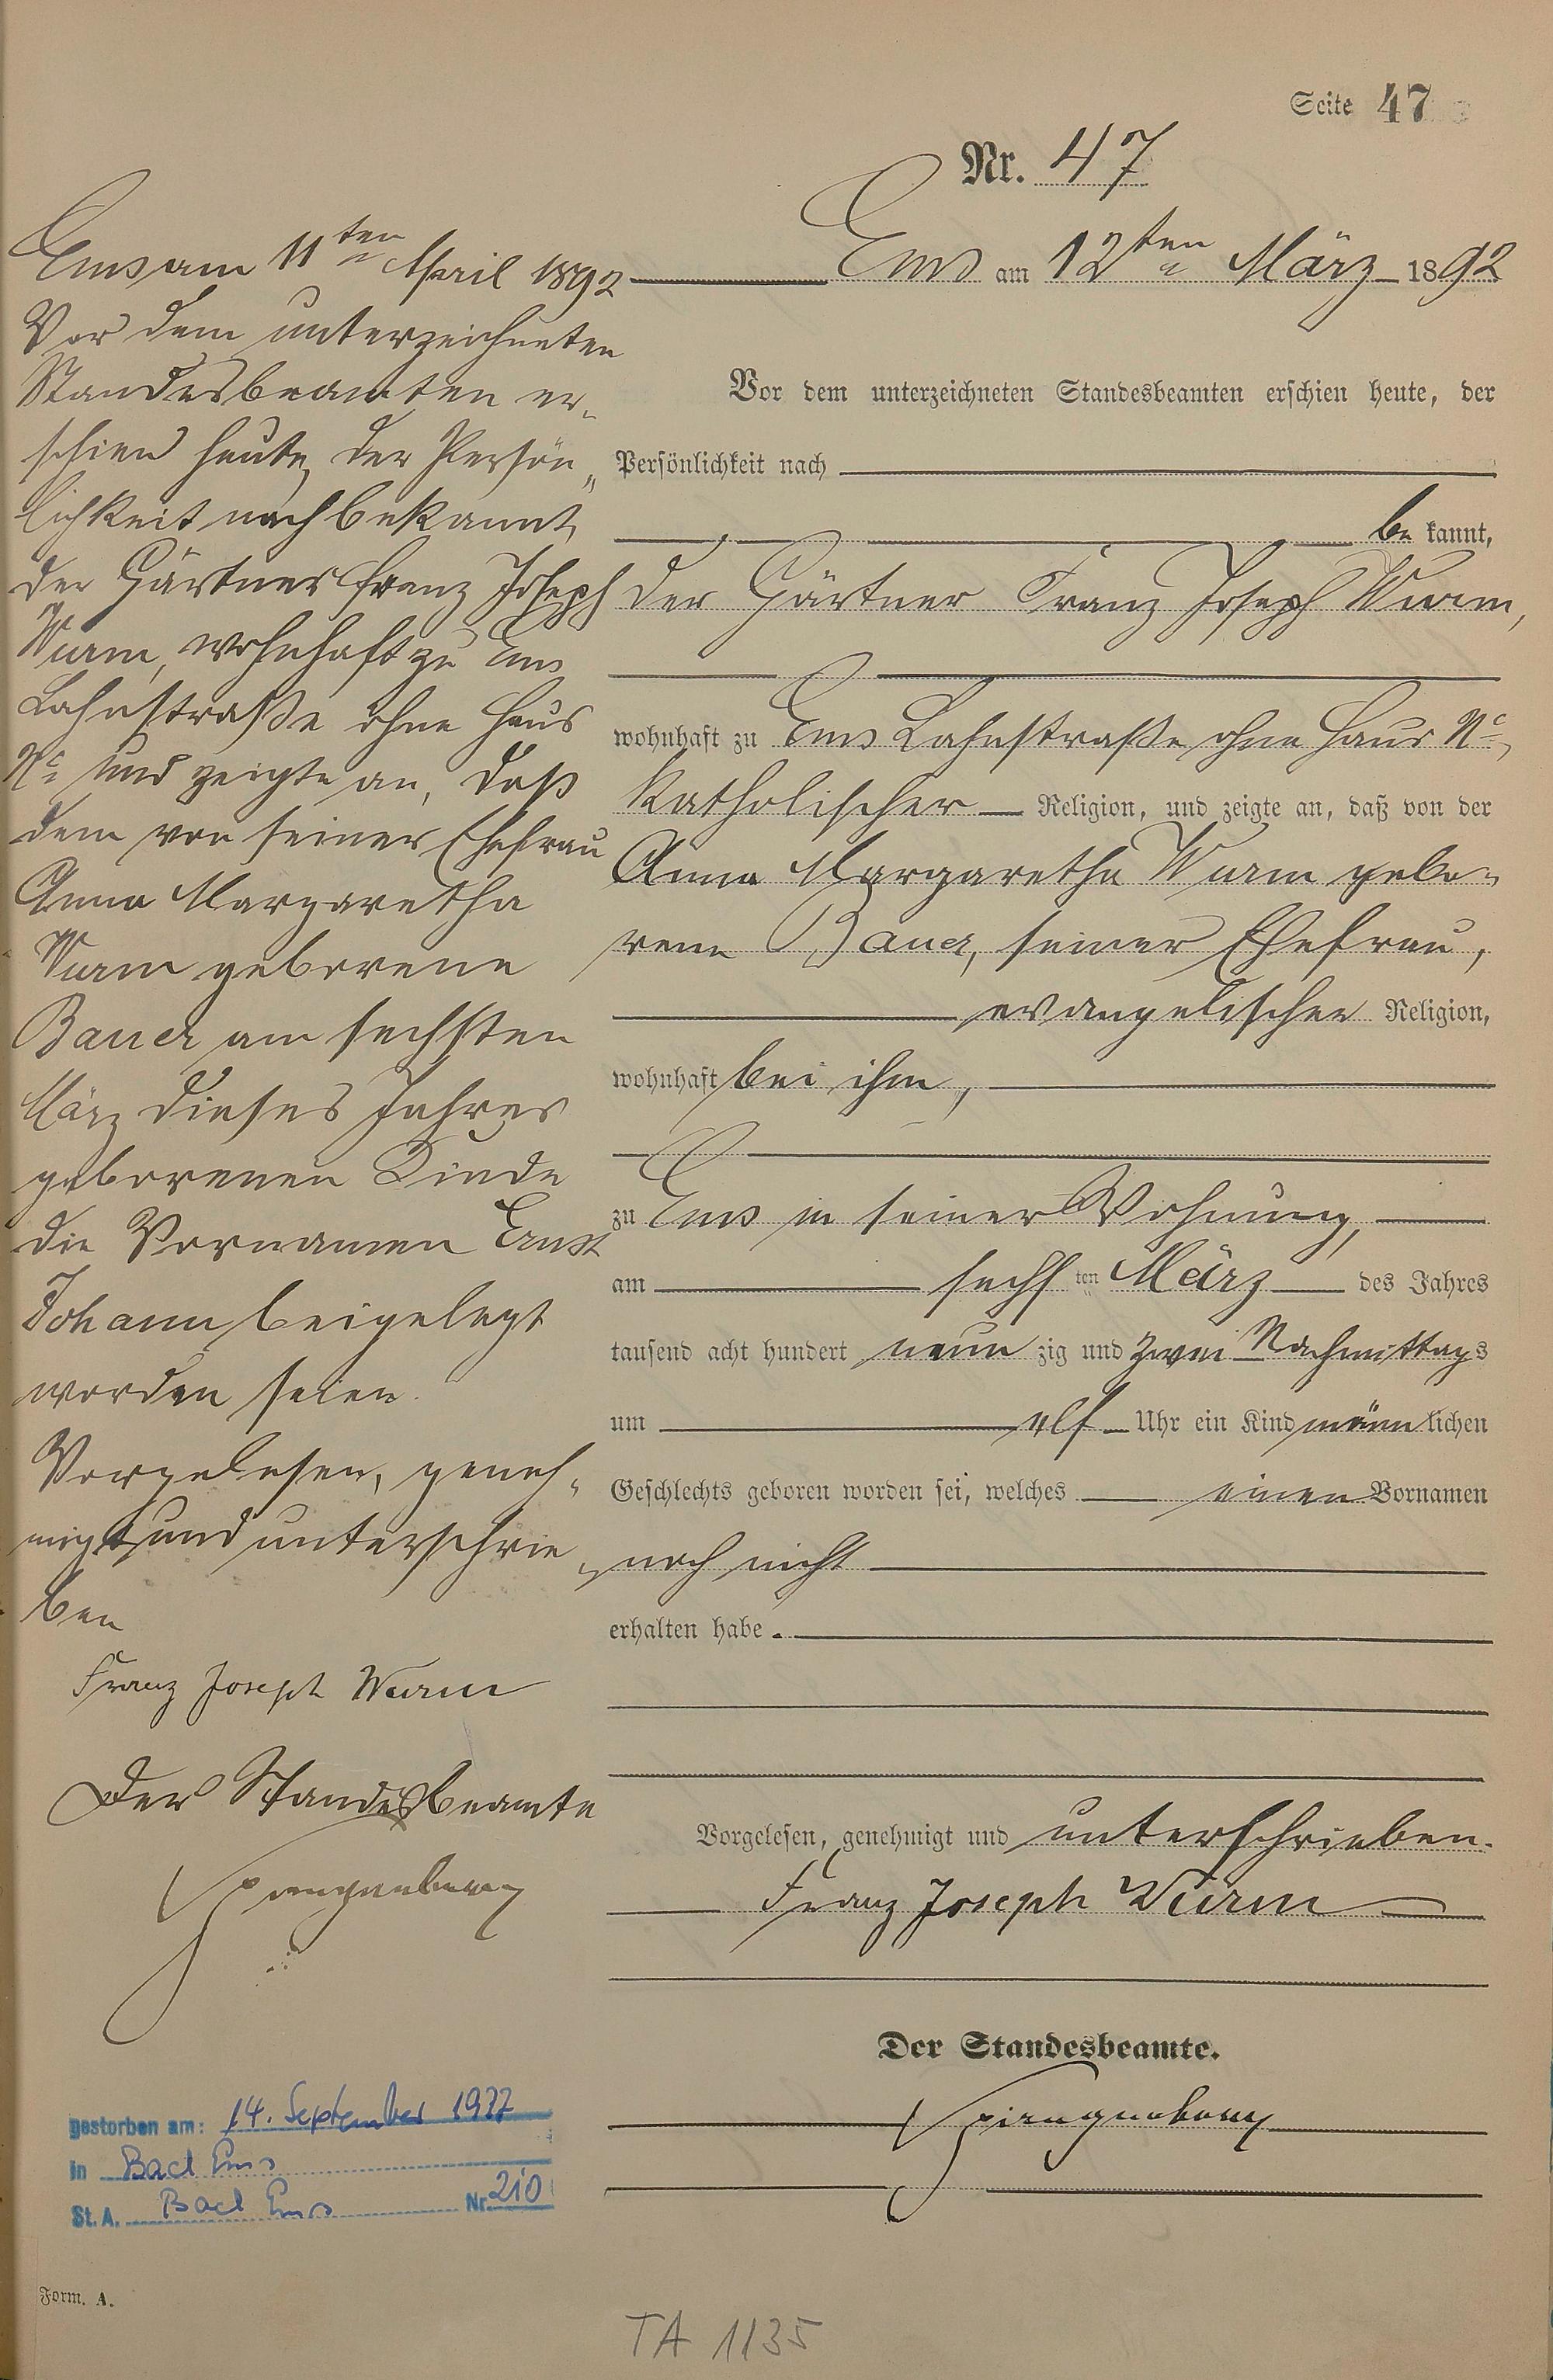 Seite 47
Nr. 47
Ems am 12ten März 1892
Vor dem unterzeichneten Standesbeamten erschien heute, der
Persönlichkeit nach
be kannt,
der Gärtner Franz Joseph Wurm,
wohnhaft zu Ems Lahnstraße ohne Haus No,
katholischer Religion, und zeigte an, daß von der
Anna Margaretha Wurm gebo-
rene Bauer, seiner Ehefrau,
evangelischer Religion,
wohnhaft bei ihm,
zu Ems in seiner Wohnung,
am sechs ten März des Jahres
tausend acht hundert neun zig und zwei Nachmittags
um elf Uhr ein Kind männ lichen
Geschlechts geboren worden sei, welches einen Vornamen
noch nicht
erhalten habe.
Vorgelesen, genehmigt und unterschrieben.
Franz Joseph Wurm
Der Standesbeamte.
Ems am 11ten April 1892
Vor dem unterzeichneten
Standesbeamten er-
schien heute, der Persön-
lichkeit nach bekannt,
der Gärtner Franz Joseph
Wurm, wohnhaft zu Ems
Lahnstraße ohne Haus
No und zeigte an, daß
dem von seiner Ehefrau
Anna Margaretha
Wurm geborene
Bauer am sechsten
März dieses Jahres
geborenen Kinde
die Vornamen Ernst
Johann beigelegt
worden seien.
Vorgelesen, geneh-
migt und unterschrie-
ben
Franz Joseph Wurm
Der Standesbeamte
gestorben am: 14. September 1977
in Bad Ems
St. A. Bad Ems Nr. 210
Form. A.
TA 1135